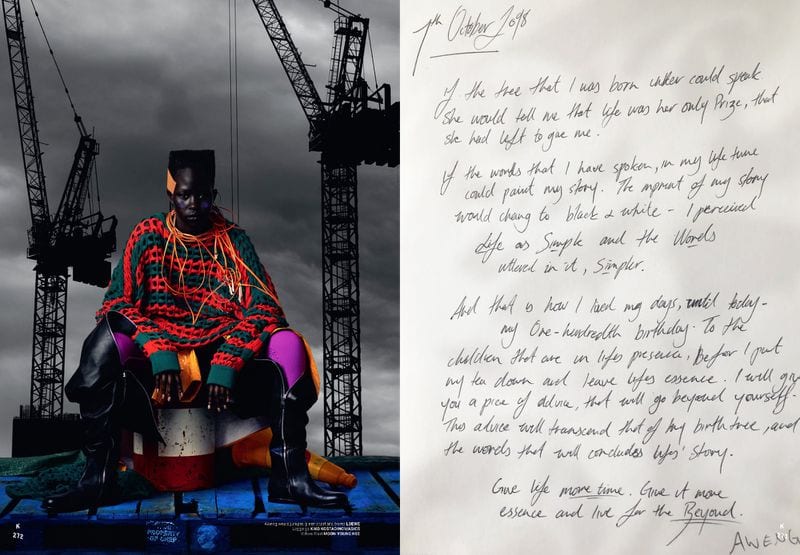 K
272
PROPERTY
CHEP
LOEWE
KIKO KOSTADINOV/ASICS
MOON YOUNG HEE
7th October 2098
If the tree that I was born under could speak
She would tell me that life was her only Prize, that
she had left to give me.
If the words that I have spoken, in my life time
could paint my story. The of my story
would chang to black & white - I perceived
Life as Simple and the Words
uttered in it, Simpler.
And that is how I lived my days, until today -
my One-hundredth birthday. To the
children that are in lifes presence, Before I put
my tea down and leave lifes essence. I will give
you a pice of advice, that will go beyond yourself.
This advice will transcend that of my birth tree, and
the words that will concludes lifes' story.
Give life more time. Give it more
essence and live for the Beyond.
AWENG
K